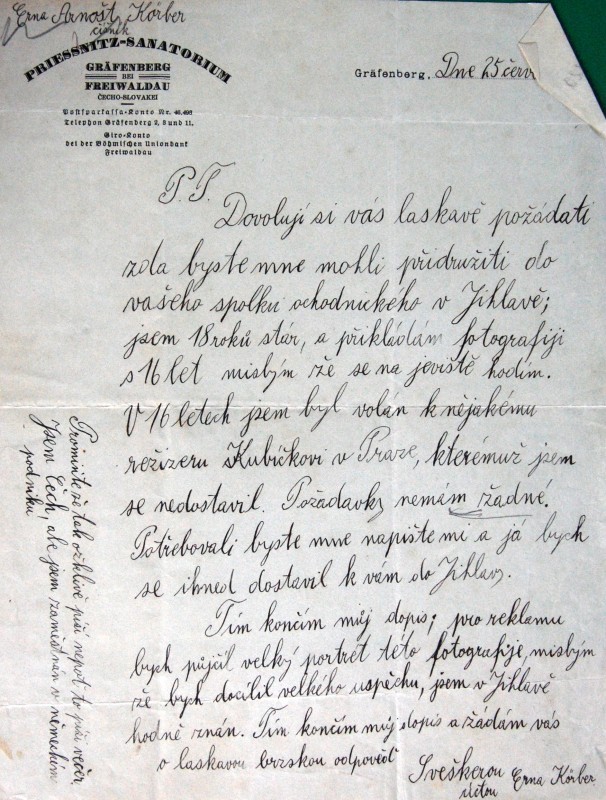 Erna Arnošt Körber
číšník
PRIESSNITZ-SANATORIUM
GRÄFENBERG
BEI
FREIWALDAU
ČECHO-SLOVAKEI
Postsparkassa-Konto Nr. 46.492
Telephon Gräfenberg 2, 8 und 11.
Giro-Konto
bei der Böhmischen Unionbank
Freiwaldau
Gräfenberg, Dne 25 červ
P. T.
Dovolují si vás laskavě požádati
zda byste mne mohli přidružiti do
vašeho spolku ochodnického v Jihlavě;
jsem 18 roků stár, a přikládám fotografiji
s 16 let mislým že se na jeviště hodím.
V 16 letech jsem byl volán k nějakému
režizeru Kubíčkovi v Praze, kterémuž jsem
se nedostavil. Požadavky nemám žadné.
Potřebovali byste mne napište mi a já bych
se ihned dostavil k vám do Jihlavy.
Tím končím můj dopis; pro reklamu
bych půjčil velký portrét této fotografije, mislým
že bych docílil velkého uspěchu, jsem v Jihlavě
hodně znán. Tím končím můj dopis a žádám vás
o laskavou brzskou odpověď
Sveškerou
úctou Erna Körber
Prominte že tak ožklivě píši nepot to píši večer
Jsem Čech, ale jsem zaměstnán v německém
podniku